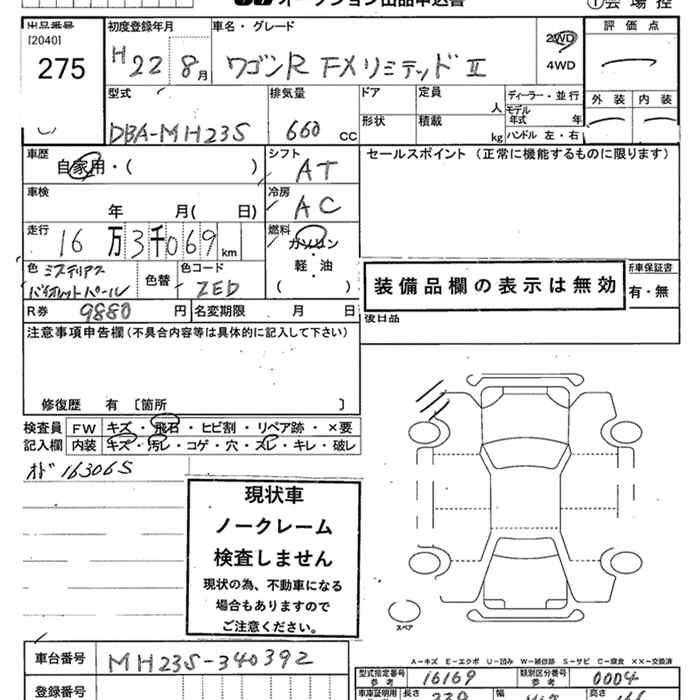 オークション出品申込書 ①会場控
出品番号 初度登録年月 車名・グレード 評価点
[2040]
275 H22 8月 ワゴンR FXリミテッドⅡ 2WD 4WD
型式 排気量 ドア 定員 人 ディーラー・並行 外装 内装
DBA-MH23S 660 CC 形状 積載 kg モデル年式 年 ハンドル 左・右
車歴 シフト セールスポイント(正常に機能するものに限ります)
自家用・( ) AT
車検 冷房
年 月( 日) AC
走行 燃料
16万3千069km ガソリン
軽・油
( )
色 ミステリアスバイオレットパール 色替 色コード ZED
装備品欄の表示は無効
新車保証書
有・無
R券 9880円 名変期限 月 日 後日品
注意事項申告欄(不具合内容等は具体的に記入して下さい)
修復歴 有 〔箇所 〕
検査員 FW キズ・飛石・ヒビ割・リペア跡・×要
記入欄 内装 キズ・汚レ・コゲ・穴・スレ・キレ・破レ
オド 163065
現状車
ノークレーム
検査しません
現状の為、不動車になる
場合もありますので
ご注意ください。
スペア
A-キズ E-エクボ U-凹み W-補修跡 S-サビ C-腐食 ××-交換済
車台番号 MH23S-340392
型式指定番号 参考 16169 類別区分番号 参考 0004
登録番号 車庫証明用 長さ 339 幅 高さ